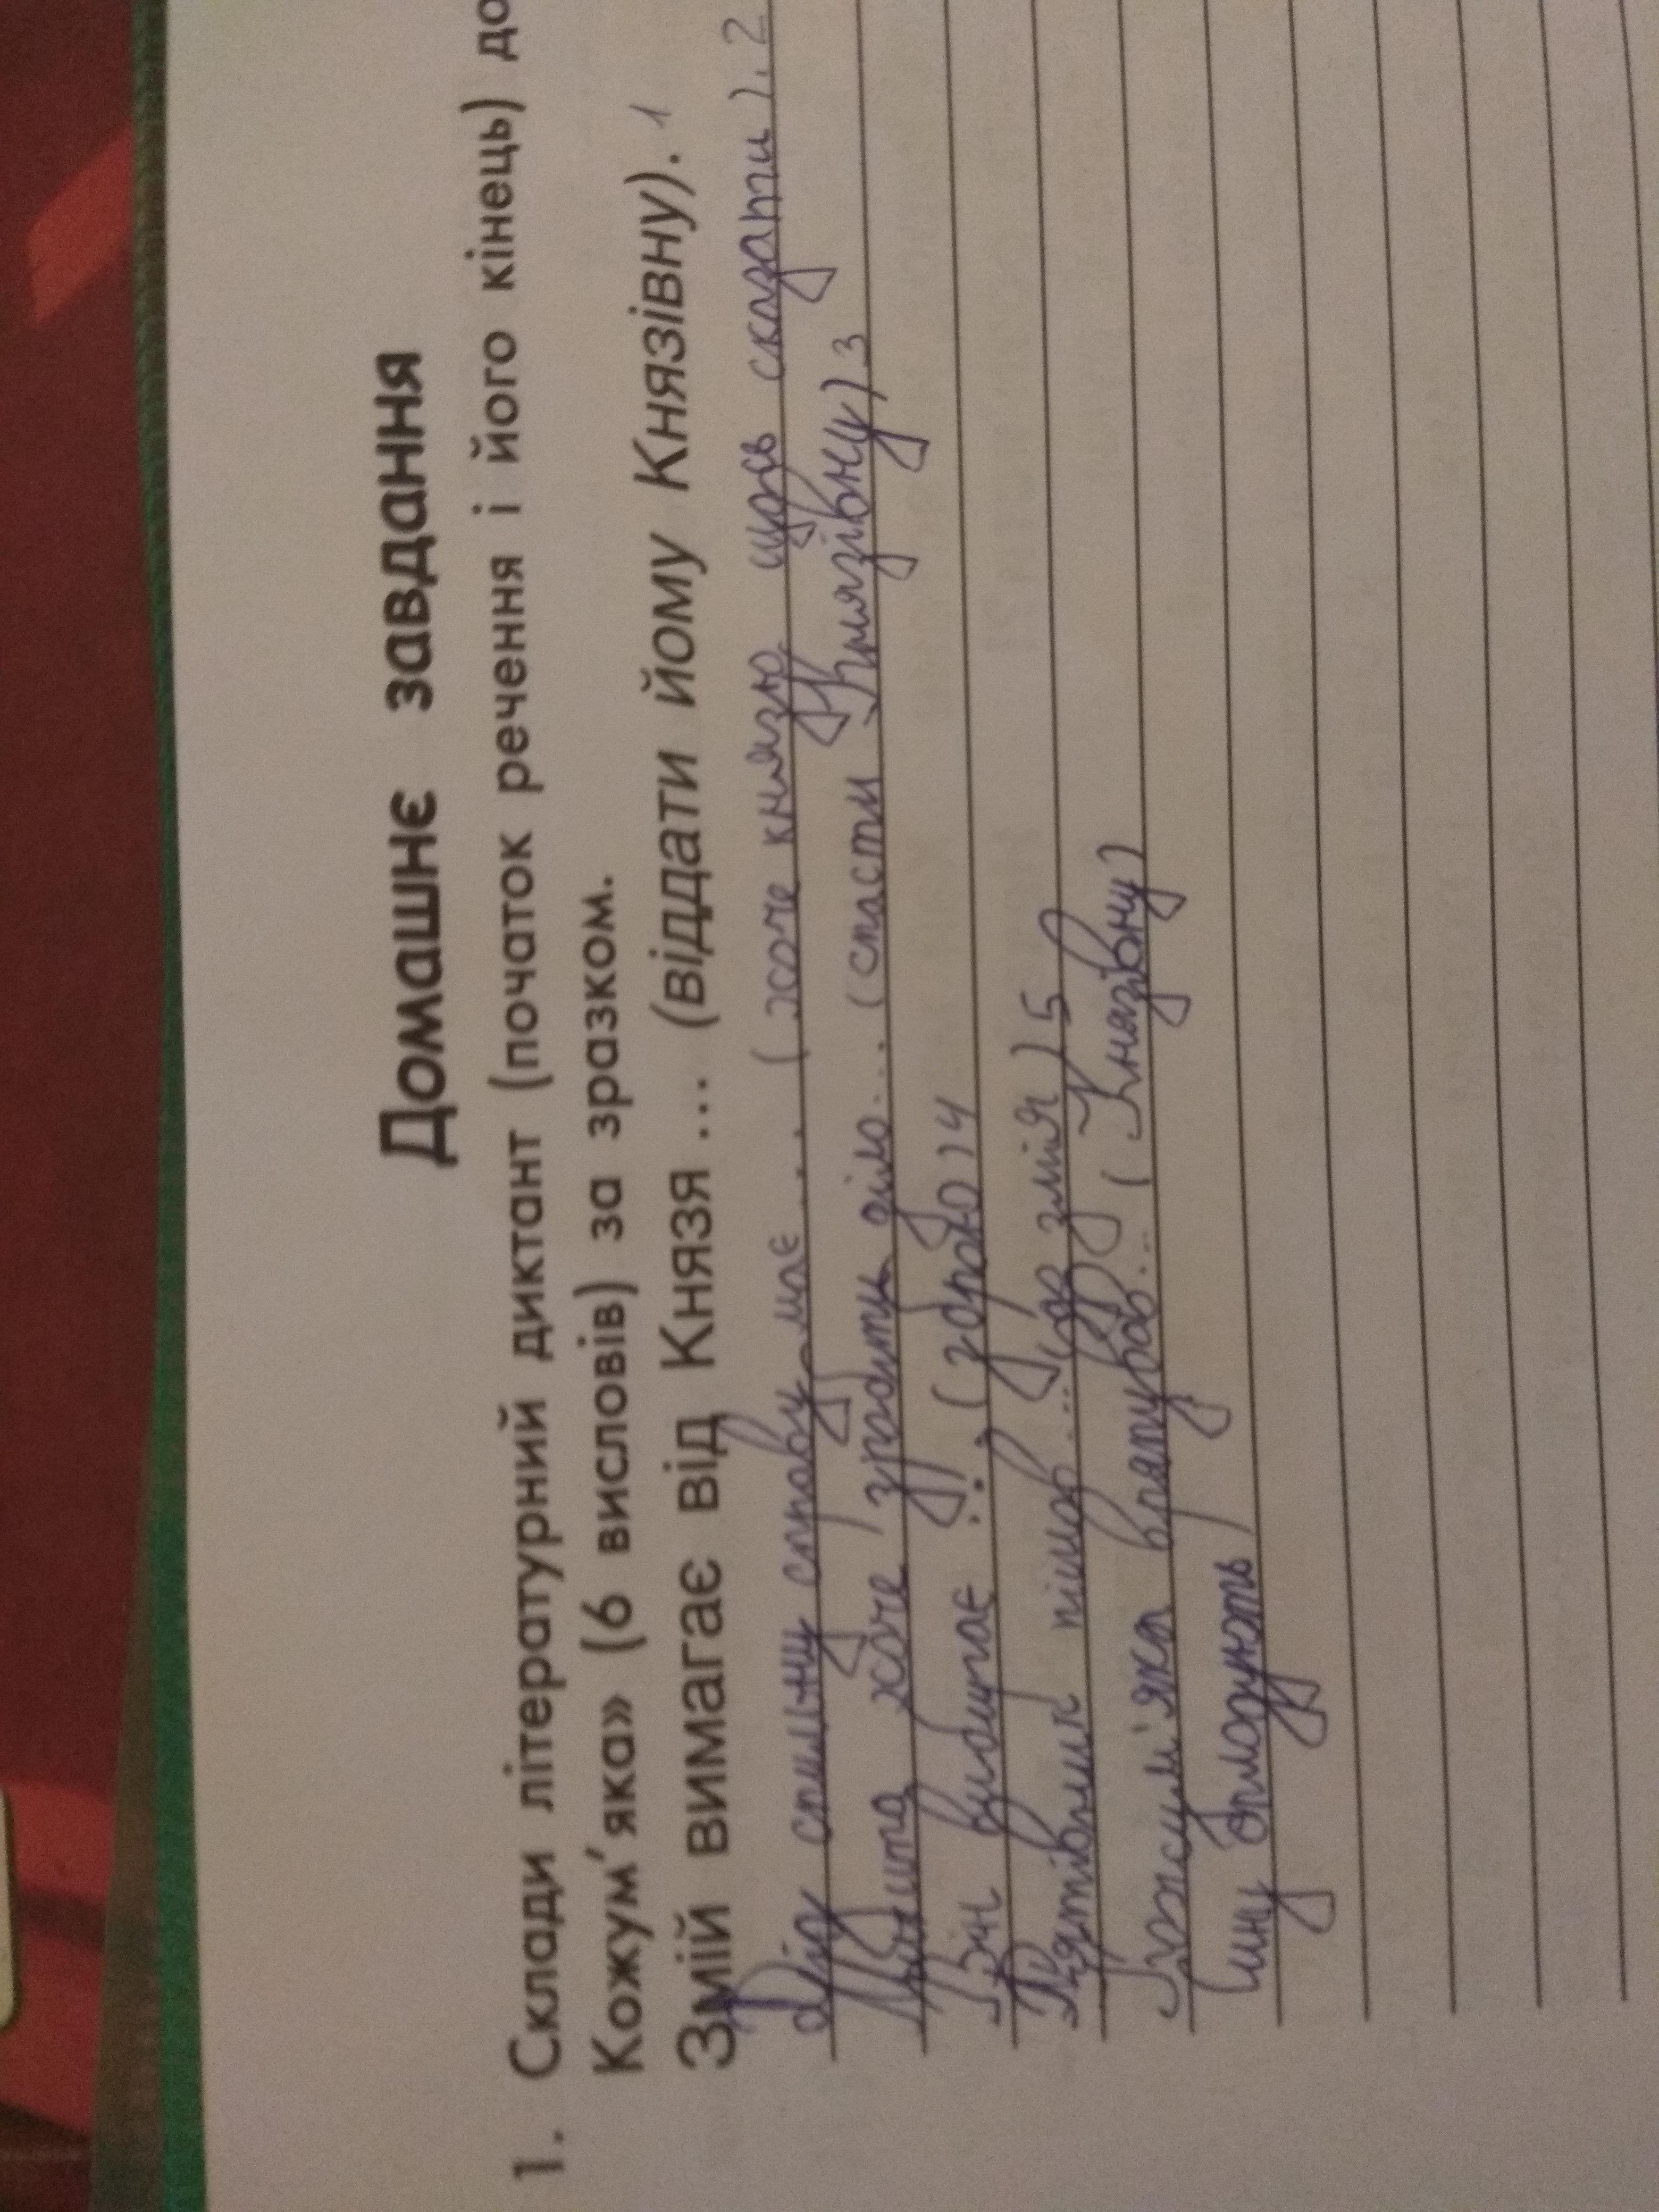 Домашнє завдання
1. Склади літературний диктант (початок речення і його кінець) до
Кожум'яка» (6 висловів) за зразком.
Змій вимагає від Князя ... (віддати йому Князівну). 1
Дід спішну справу має ... (хоче князю щось сказати). 2
Микита хоче зробить діло... (спасти Князівну) 3
Він вимагає ... (зброю) 4
Рятівник пішов ... (до змія) 5
Кожум'яка врятував... (Князівну)
чину